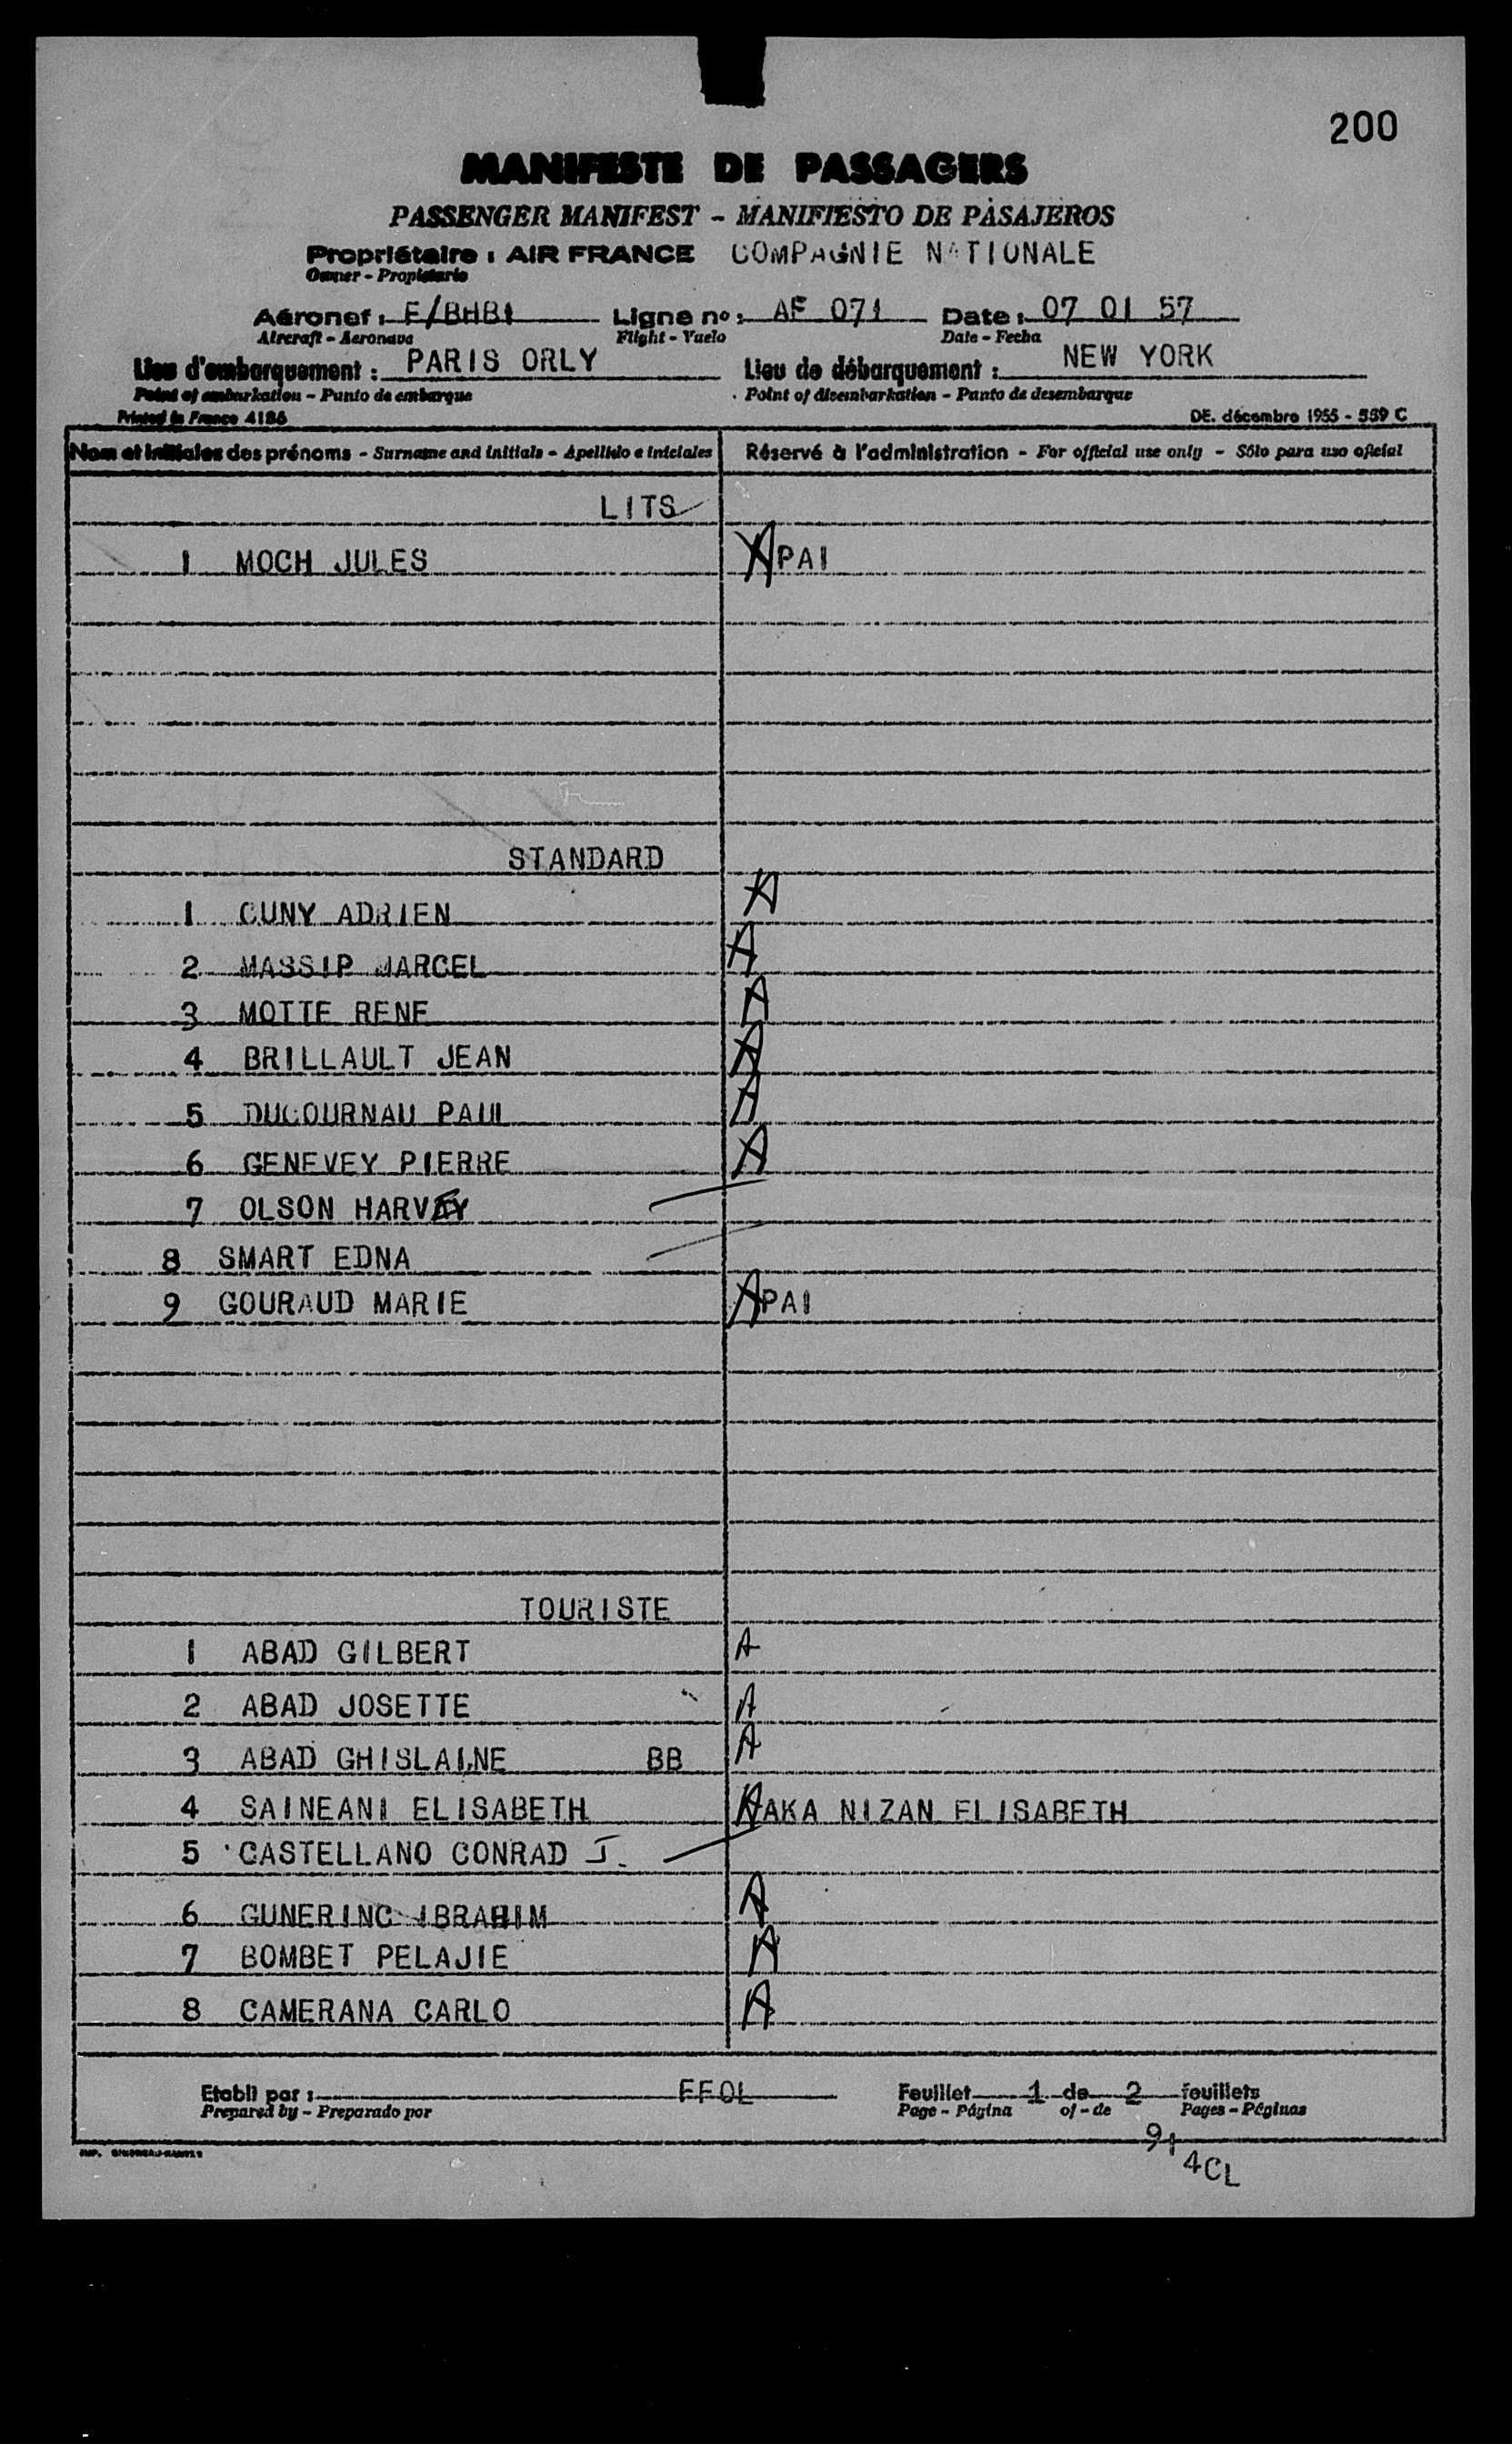 200
MANIFESTE DE PASSAGERS
PASSENGER MANIFEST - MANIFIESTO DE PASAJEROS
Propriétaire : AIR FRANCE COMPAGNIE NATIONALE
Owner - Propietario
Aéronef : F/BHBI Ligne no : AF 071 Date : 07 01 57
Aircraft - Aeronave Flight - Vuelo Date - Fecha
Lieu d'embarquement : PARIS ORLY Lieu de débarquement : NEW YORK
Point of embarkation - Punto de embarque Point of disembarkation - Punto de desembarque
Printed in France 4186 DE. décembre 1955 - 559 C
Nom et initiales des prénoms - Surname and initials - Apellido e iniciales Réservé à l'administration - For official use only - Sólo para uso oficial
LITS
1 MOCH JULES A PAI
STANDARD
1 CUNY ADRIEN A
2 MASSIP MARCEL A
3 MOTTE RENE A
4 BRILLAULT JEAN A
5 DUCOURNAU PAUL A
6 GENEVEY PIERRE A
7 OLSON HARVEY
8 SMART EDNA
9 GOURAUD MARIE A PAI
TOURISTE
1 ABAD GILBERT A
2 ABAD JOSETTE A
3 ABAD GHISLAINE BB A
4 SAINEANI ELISABETH A AKA NIZAN ELISABETH
5 CASTELLANO CONRAD J.
6 GUNERINC IBRAHIM A
7 BOMBET PELAJIE A
8 CAMERANA CARLO A
Etabli par : FFOL Feuillet 1 de 2 feuillets
Prepared by - Preparado por Page - Página of - de Pages - Páginas
4CL